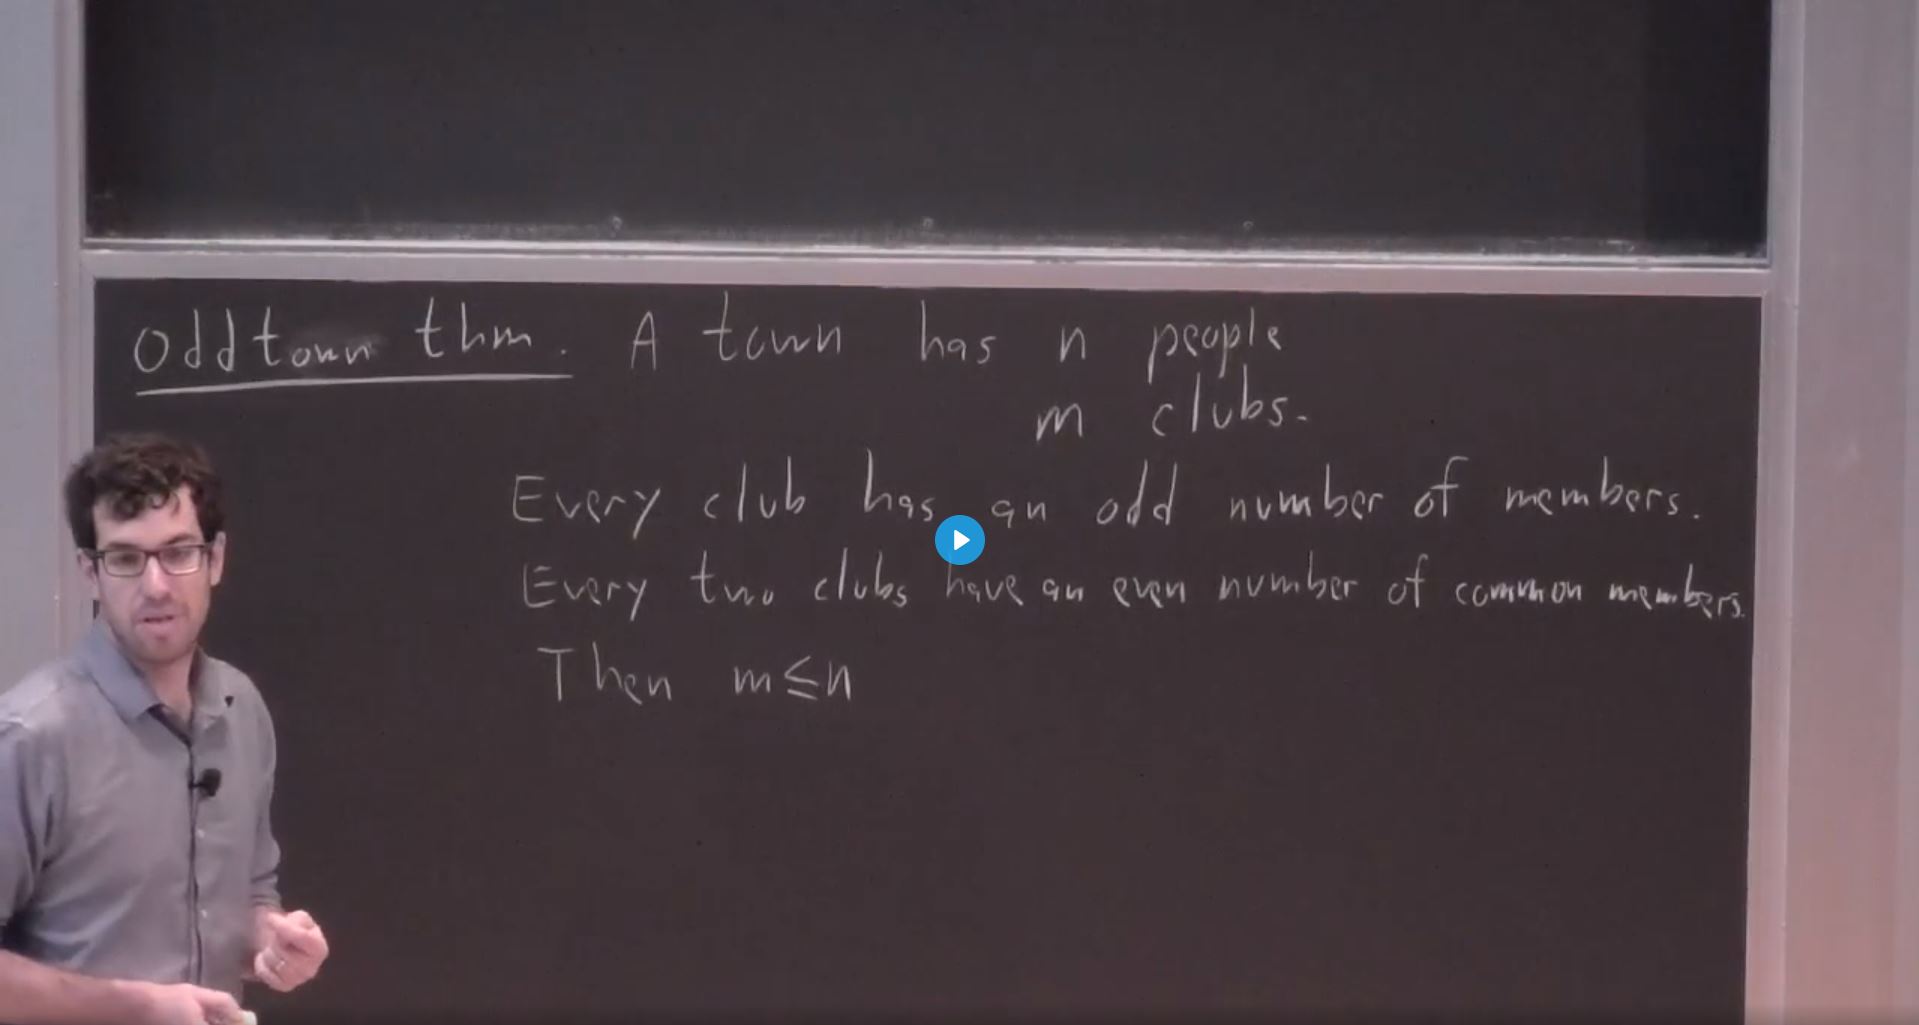 Oddtown thm. A town has n people
m clubs.
Every club has an odd number of members.
Every two clubs have an even number of common members.
Then m≤n